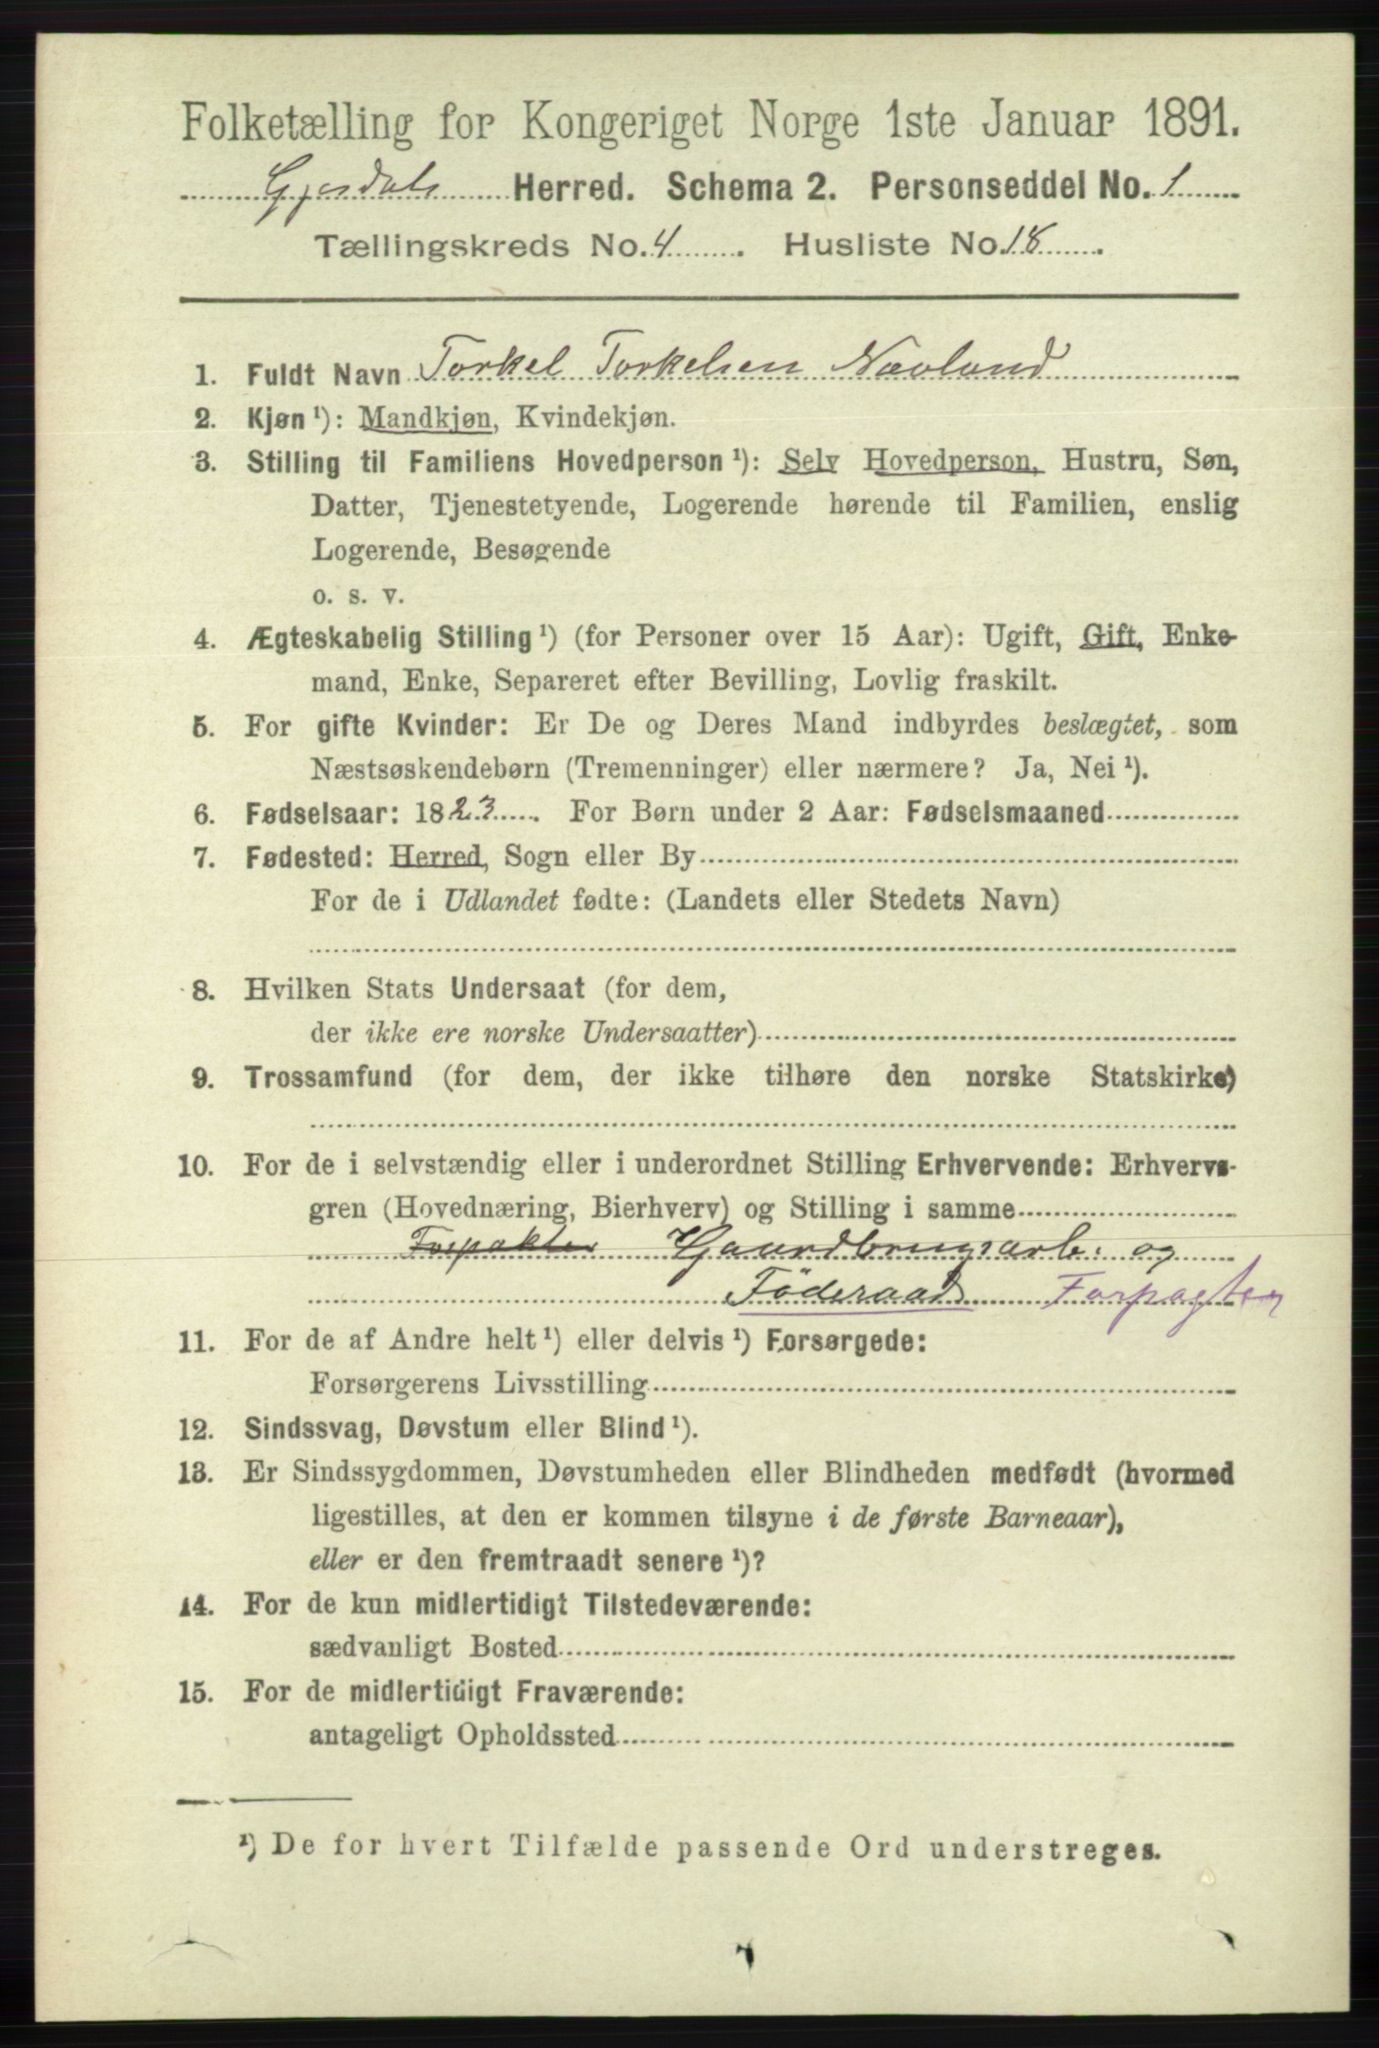 Folketælling for Kongeriget Norge 1ste Januar 1891.
Gjesdals Herred. Schema 2. Personseddel No. 1
Tællingskreds No. 4. Husliste No. 18.
1. Fuldt Navn Torkel Torkelsen Nævland
2. Kjøn ¹): Mandkjøn, Kvindekjøn.
3. Stilling til Familiens Hovedperson ¹): Selv Hovedperson, Hustru, Søn,
Datter, Tjenestetyende, Logerende hørende til Familien, enslig
Logerende, Besøgende
o. s. v.
4. Ægteskabelig Stilling ¹) (for Personer over 15 Aar): Ugift, Gift, Enke-
mand, Enke, Separeret efter Bevilling, Lovlig fraskilt.
5. For gifte Kvinder: Er De og Deres Mand indbyrdes beslægtet, som
Næstsøskendebørn (Tremenninger) eller nærmere? Ja, Nei ¹).
6. Fødselsaar: 1823. For Børn under 2 Aar: Fødselsmaaned
7. Fødested: Herred, Sogn eller By
For de i Udlandet fødte: (Landets eller Stedets Navn)
8. Hvilken Stats Undersaat (for dem,
der ikke ere norske Undersaatter)
9. Trossamfund (for dem, der ikke tilhøre den norske Statskirke)
10. For de i selvstændig eller i underordnet Stilling Erhvervende: Erhvervs-
gren (Hovednæring, Bierhverv) og Stilling i samme
Forpakter Gaardbrugsarb. og
Föderaad Forpagter
11. For de af Andre helt ¹) eller delvis ¹) Forsørgede:
Forsørgerens Livsstilling
12. Sindssvag, Døvstum eller Blind ¹).
13. Er Sindssygdommen, Døvstumheden eller Blindheden medfødt (hvormed
ligestilles, at den er kommen tilsyne i de første Barneaar),
eller er den fremtraadt senere ¹)?
14. For de kun midlertidigt Tilstedeværende:
sædvanligt Bosted
15. For de midlertidigt Fraværende:
antageligt Opholdssted
¹) De for hvert Tilfælde passende Ord understreges.